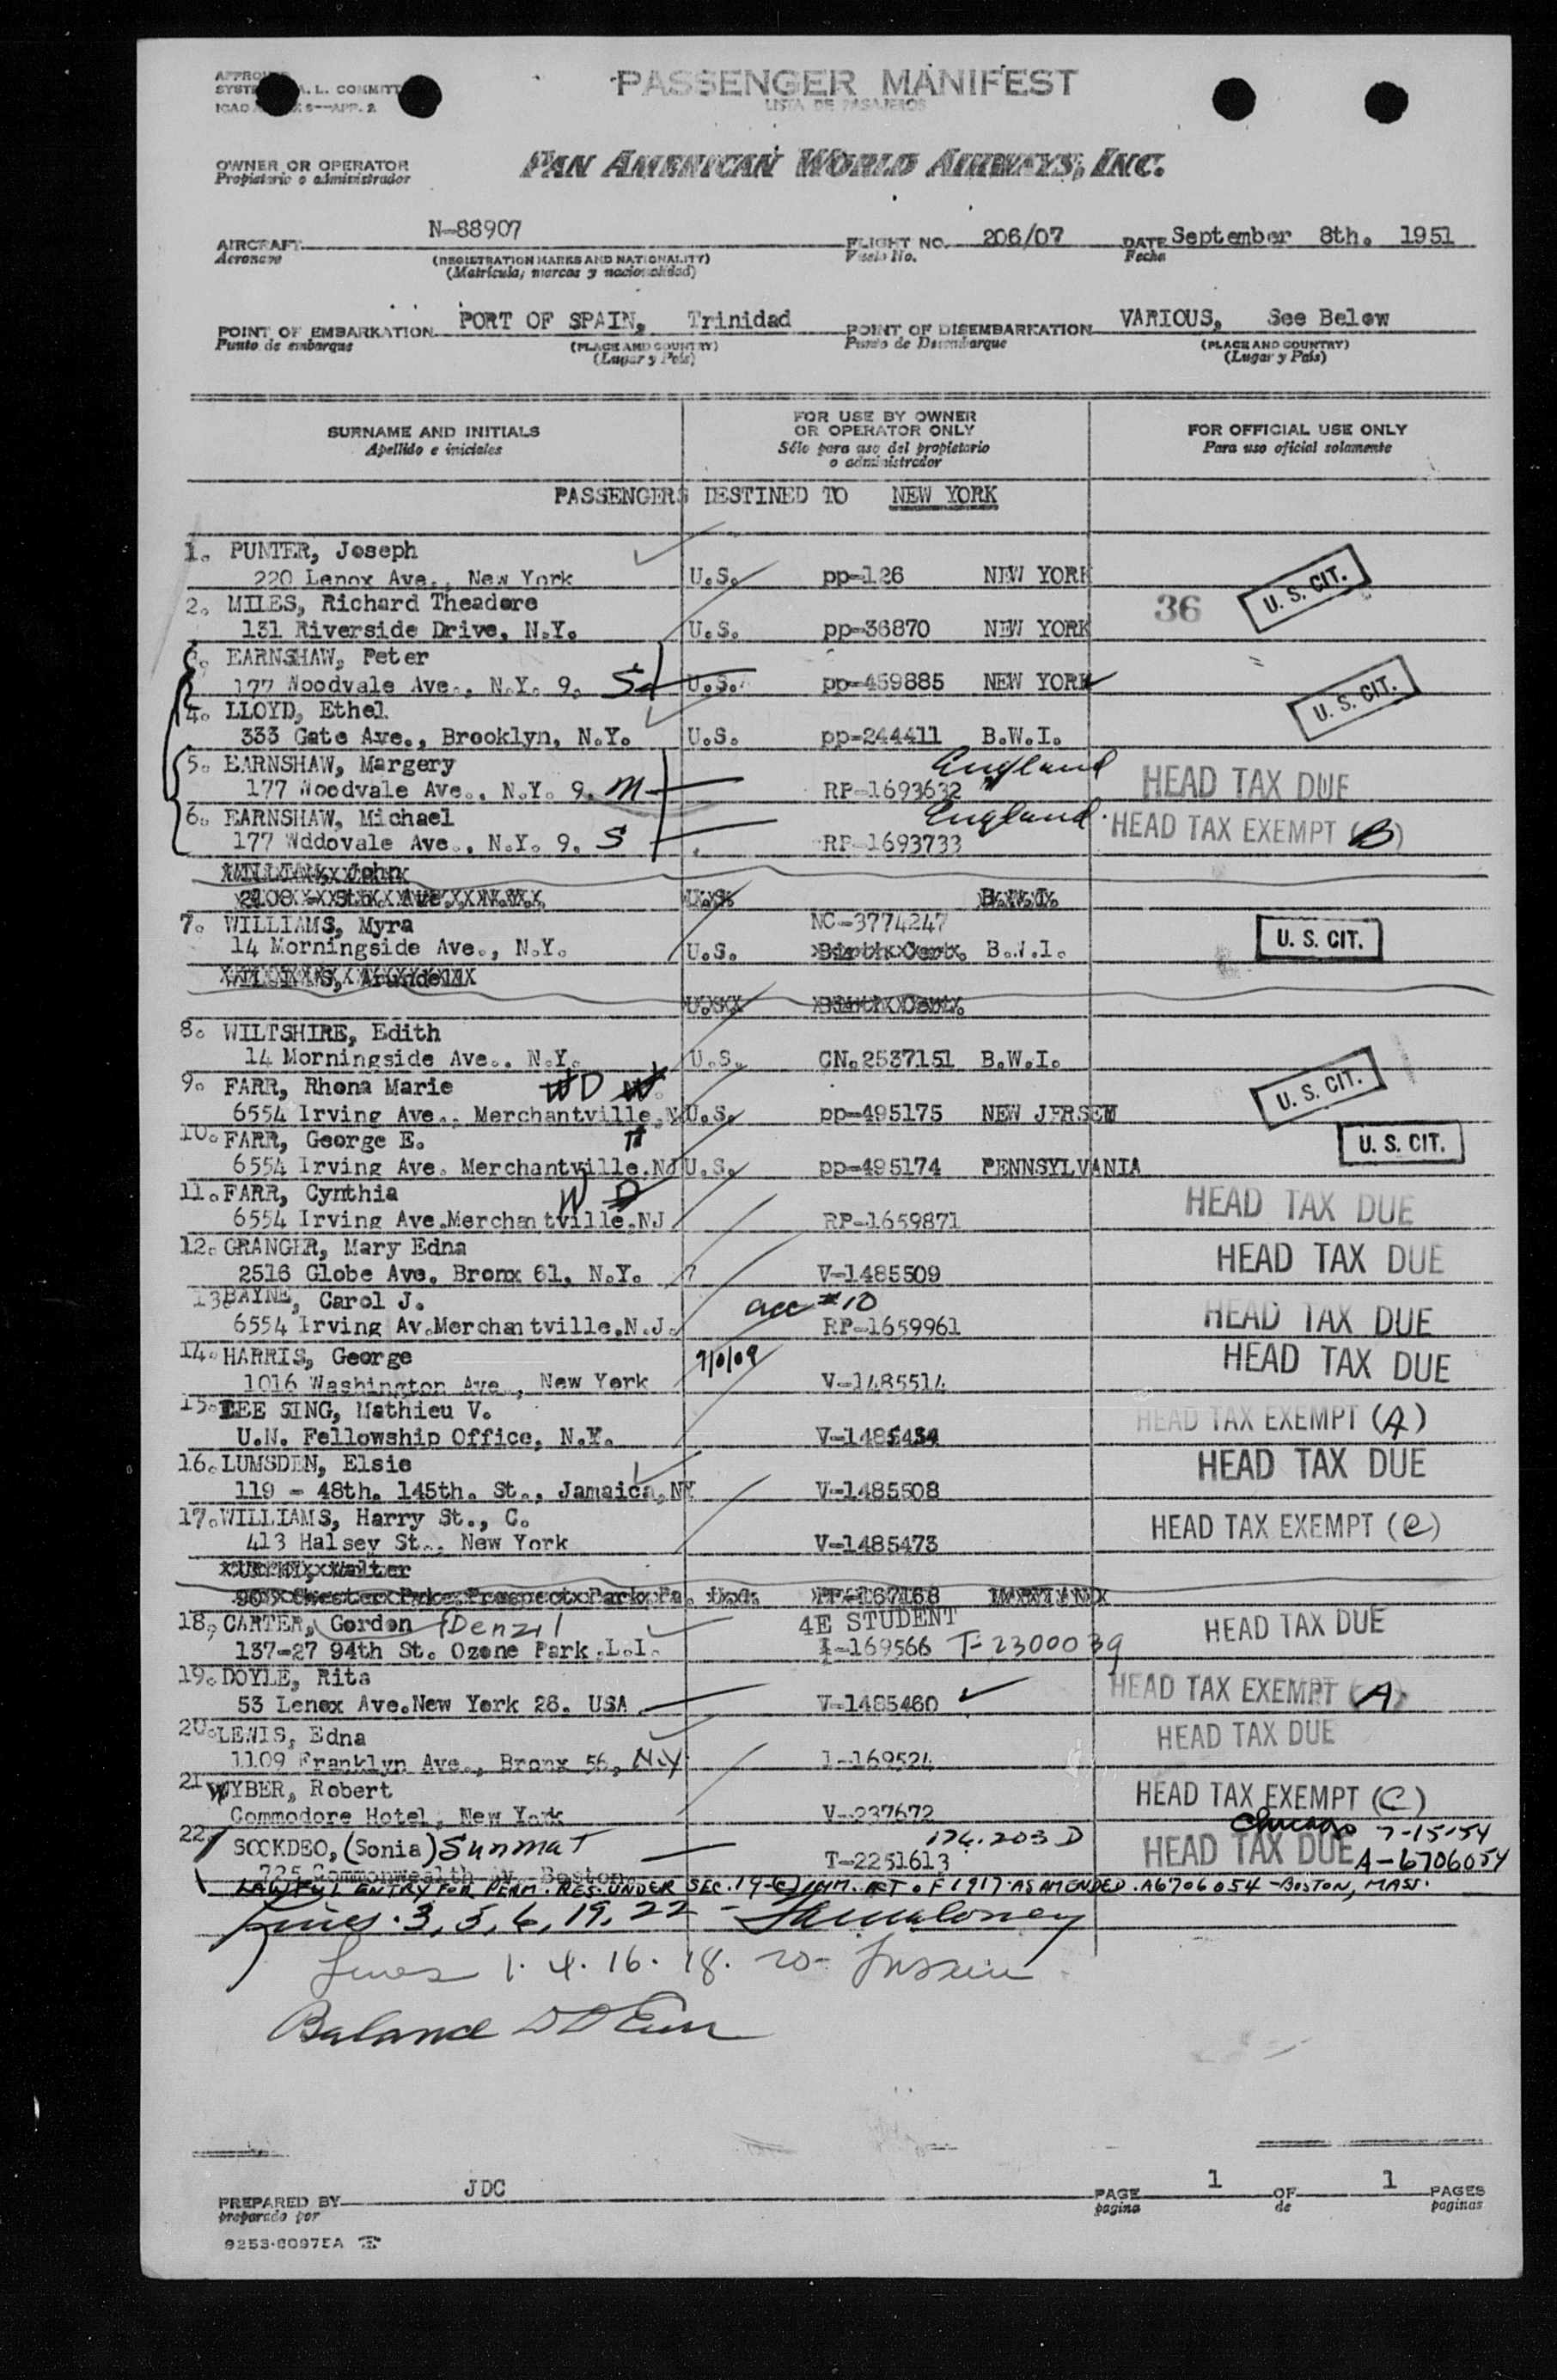 PASSENGER MANIFEST
LISTA DE PASAJEROS
OWNER OR OPERATOR
Propietario o administrador
PAN AMERICAN WORLD AIRWAYS, INC.
AIRCRAFT N-88907 FLIGHT NO. 206/07 DATE September 8th. 1951
Aeronave (REGISTRATION MARKS AND NATIONALITY) Vuelo No. Fecha
(Matricula, marcas y nacionalidad)
POINT OF EMBARKATION PORT OF SPAIN, Trinidad POINT OF DISEMBARKATION VARIOUS, See Below
Punto de embarque (PLACE AND COUNTRY) Punto de Desembarque (PLACE AND COUNTRY)
(Lugar y País) (Lugar y País)
SURNAME AND INITIALS
Apellido e iniciales
FOR USE BY OWNER
OR OPERATOR ONLY
Sólo para uso del propietario
o administrador
FOR OFFICIAL USE ONLY
Para uso oficial solamente
PASSENGERS DESTINED TO NEW YORK
1. PUNTER, Joseph
220 Lenox Ave., New York U.S. pp-126 NEW YORK U. S. CIT.
2. MILES, Richard Theadore 36
131 Riverside Drive, N.Y. U.S. pp-36870 NEW YORK
3. EARNSHAW, Peter
177 Woodvale Ave., N.Y. 9. S U.S. pp-459885 NEW YORK U. S. CIT.
4. LLOYD, Ethel
333 Gate Ave., Brooklyn, N.Y. U.S. pp-244411 B.W.I.
5. EARNSHAW, Margery England HEAD TAX DUE
177 Woodvale Ave., N.Y. 9. M RP-1693632
6. EARNSHAW, Michael England HEAD TAX EXEMPT (B)
177 Wddovale Ave., N.Y. 9. S RP-1693733
7. WILLIAMS, Myra NC-3774247
14 Morningside Ave., N.Y. U.S. B.W.I. U. S. CIT.
8. WILTSHIRE, Edith
14 Morningside Ave., N.Y. U.S. CN.2537151 B.W.I.
9. FARR, Rhona Marie U. S. CIT.
6554 Irving Ave., Merchantville, U.S. pp-495175 NEW JERSEY
10. FARR, George E. U. S. CIT.
6554 Irving Ave. Merchantville.NJ U.S. pp-495174 PENNSYLVANIA
11. FARR, Cynthia W D HEAD TAX DUE
6554 Irving Ave.Merchantville.NJ RP-1659871
12. GRANGER, Mary Edna HEAD TAX DUE
2516 Globe Ave. Bronx 61, N.Y. V-1485509
13. BAYNE, Carol J. acc #10 HEAD TAX DUE
6554 Irving Av.Merchantville.N.J. RP-1659961
14. HARRIS, George HEAD TAX DUE
1016 Washington Ave., New York V-1485514
15. LEE SING, Mathieu V. HEAD TAX EXEMPT (A)
U.N. Fellowship Office, N.Y. V-1485434
16. LUMSDEN, Elsie HEAD TAX DUE
119 - 48th. 145th. St., Jamaica,NY V-1485508
17. WILLIAMS, Harry St., C. HEAD TAX EXEMPT (C)
413 Halsey St., New York V-1485473
18. CARTER, Gordon (Denzil 4E STUDENT HEAD TAX DUE
137-27 94th St. Ozone Park .L.I. I-169566 T-2300039
19. DOYLE, Rita HEAD TAX EXEMPT (A)
53 Lenox Ave.New York 26. USA V-1485460
20. LEWIS, Edna HEAD TAX DUE
1109 Franklyn Ave., Bronx 56, N.Y. I-169524
21 WYBER, Robert HEAD TAX EXEMPT (C)
Commodore Hotel, New York V-237672
22 SOOKDEO, (Sonia) Sunmat 176.203 D HEAD TAX DUE Chicago 7-15-54
725 Commonwealth Av. Boston. T-2251613 A-6706054
LAWFUL ENTRY FOR PERM. RES. UNDER SEC. 19 (C) IMM. ACT OF 1917 AS AMENDED. A6706054 - BOSTON, MASS.
Lines 3, 5, 6, 19, 22
Lines 1. 4. 16. 18. 20
Balance
PREPARED BY JDC PAGE 1 OF 1 PAGES
preparado por pagina de paginas
9253-60975A